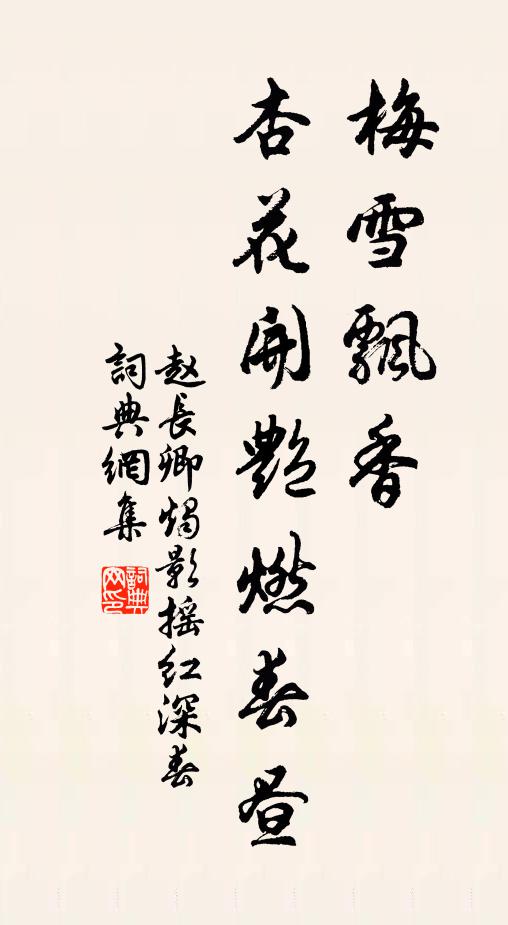 梅雪飄香
杏花開艷燃春晝
趙長卿燭影搖紅深春
詞典網集
詞典网印